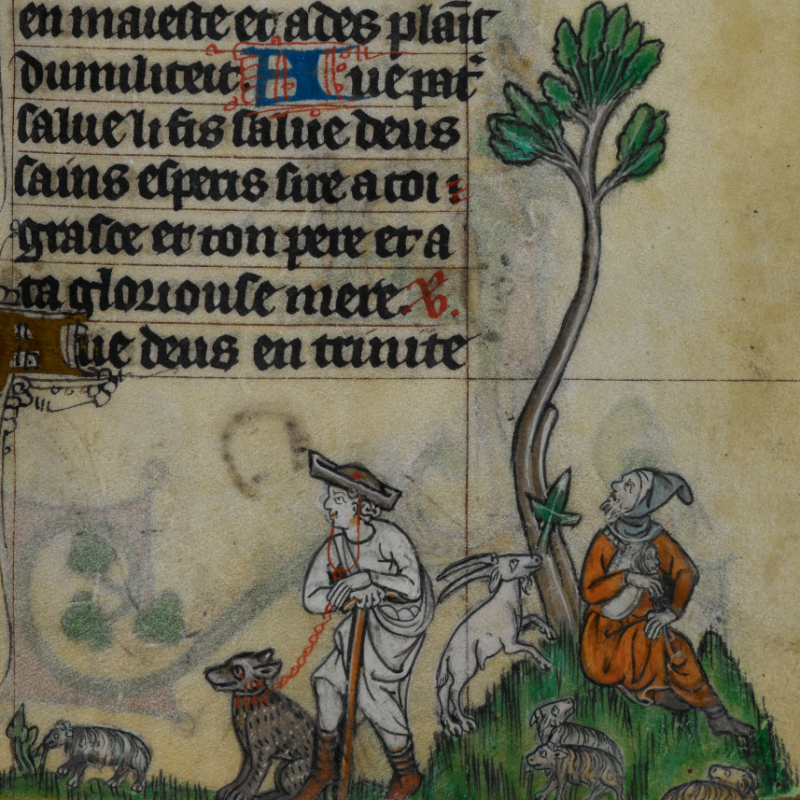 en maieste et ades plaīs
dumiliteit. Aue pat̾
salue li fis salue deus
sains esperis sire a toi
grasce et ton pere et a
ta gloriouse mere.
Aue deus en trinite